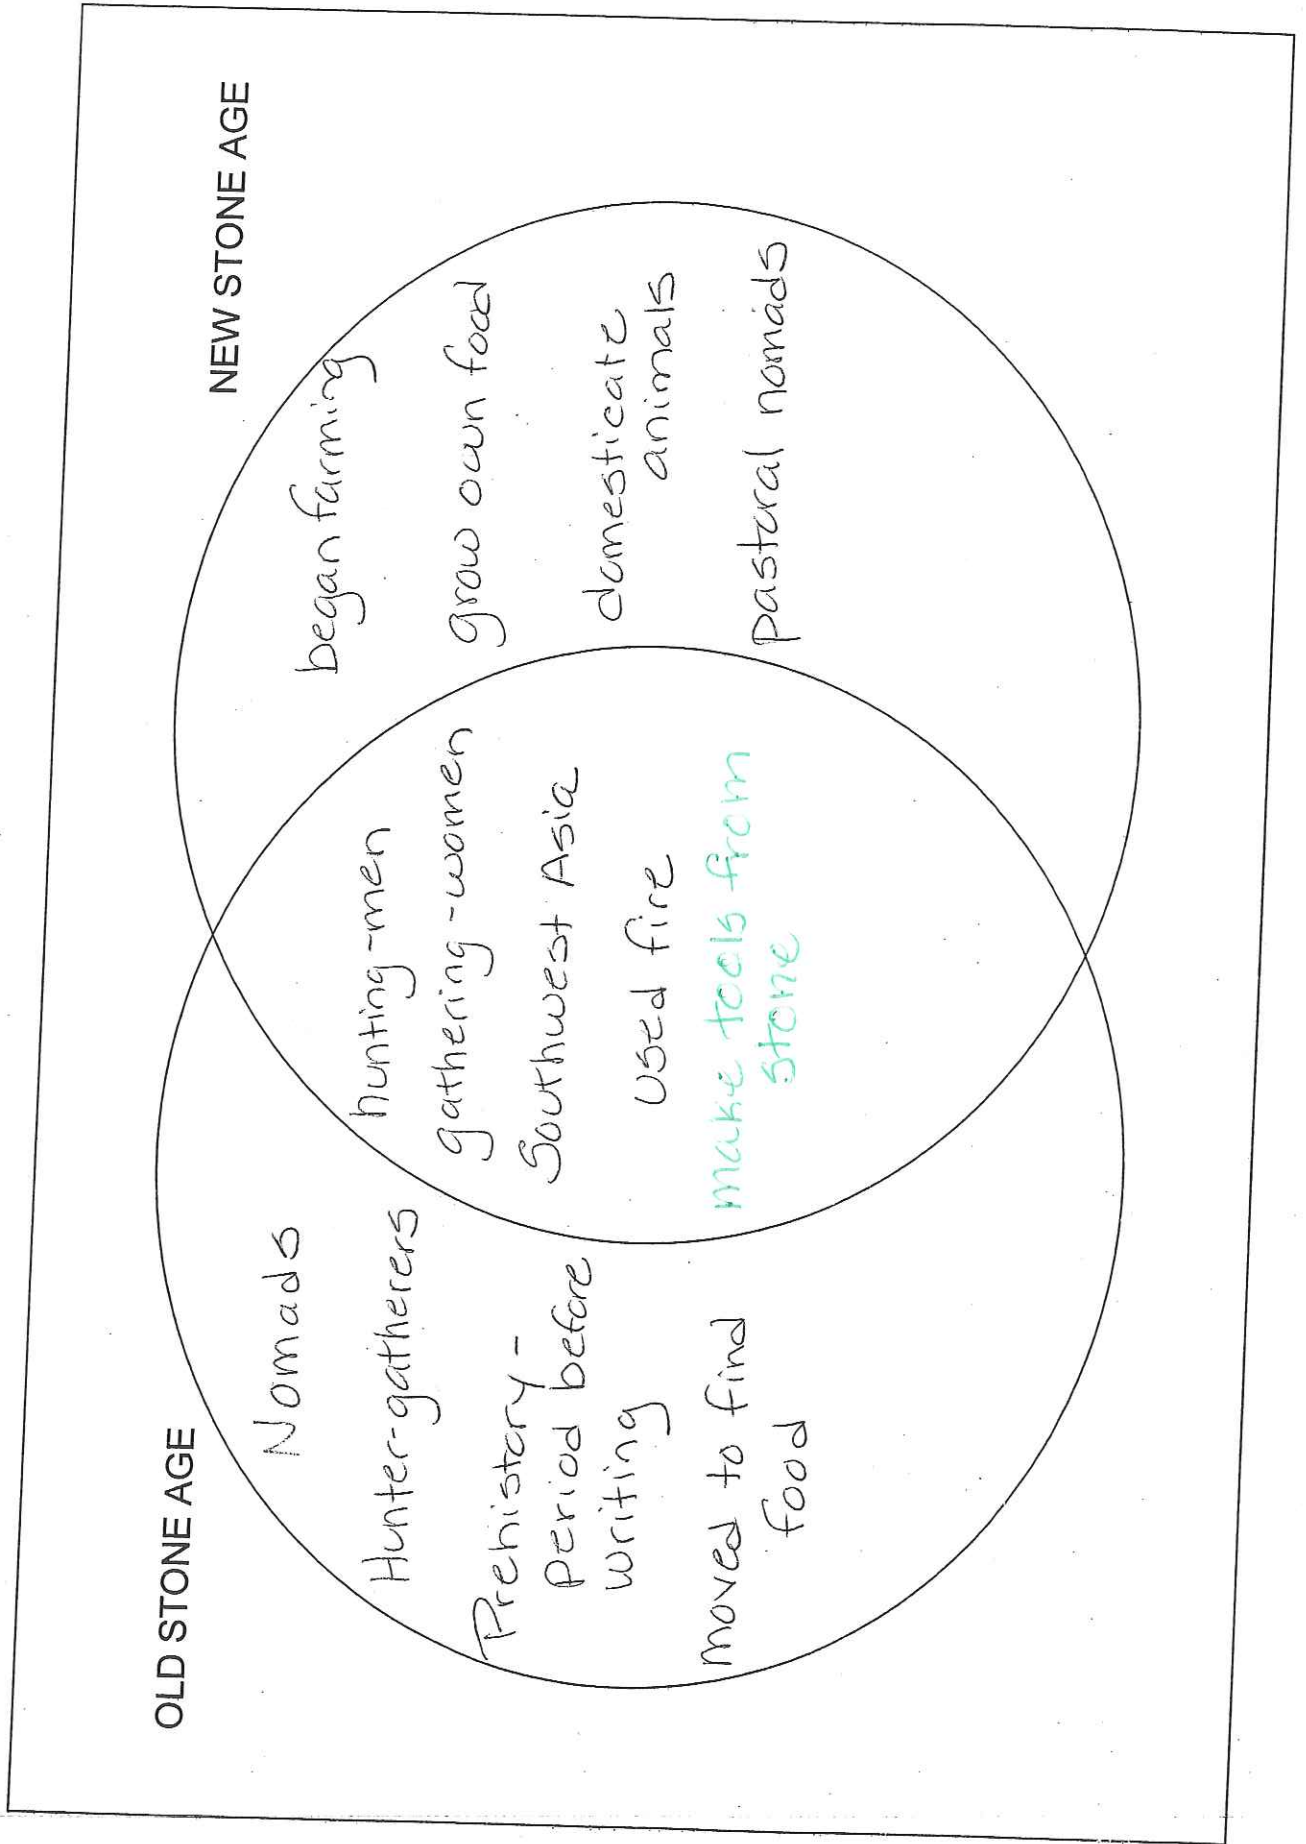 OLD STONE AGE
NEW STONE AGE
Nomads
Hunter-gatherers
Prehistory -
period before
writing
moved to find
food
hunting-men
gathering-women
Southwest Asia
used fire
make tools from
stone
began farming
grow own food
domesticate
animals
pastoral nomads